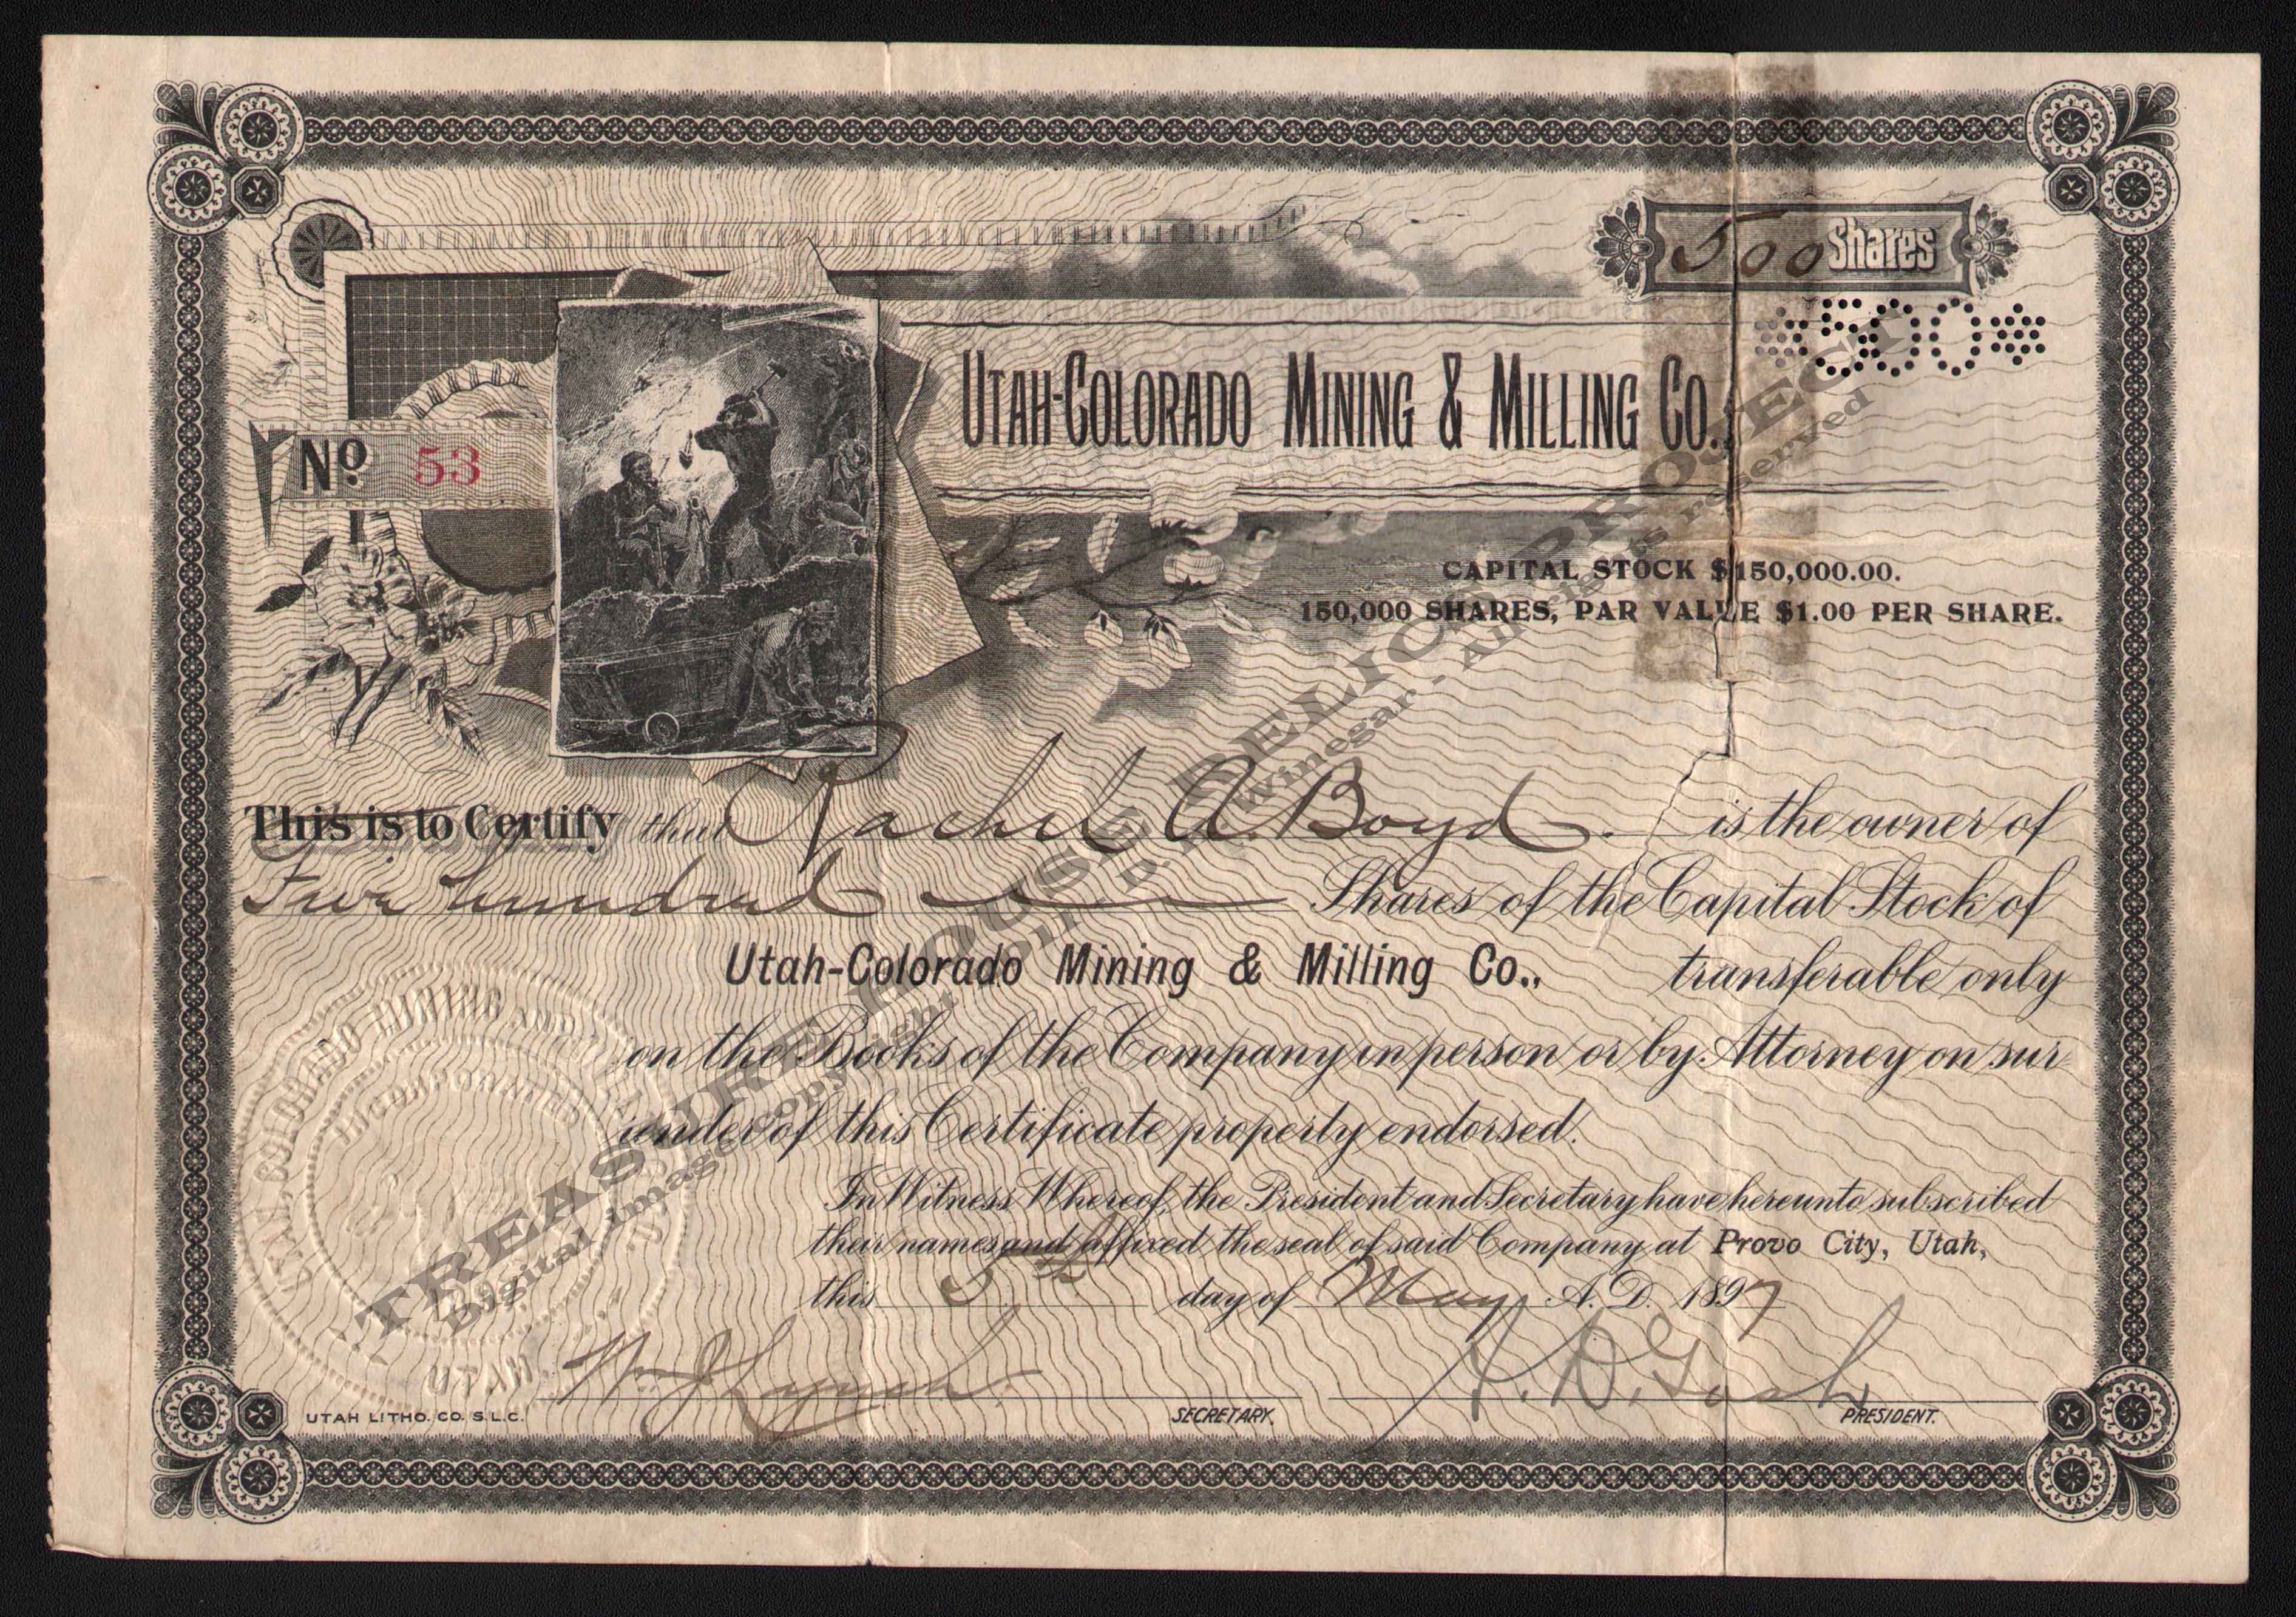 500 Shares
*500*
UTAH-COLORADO MINING & MILLING CO.,
No. 53
CAPITAL STOCK $150,000.00.
150,000 SHARES, PAR VALUE $1.00 PER SHARE.
This is to Certify that Rachel A. Boyd. is the owner of
Five hundred Shares of the Capital Stock of
Utah-Colorado Mining & Milling Co., transferable only
on the Books of the Company in person or by Attorney on sur
render of this Certificate properly endorsed.
In Witness Whereof, the President and Secretary have hereunto subscribed
their names and affixed the seal of said Company at Provo City, Utah,
this 5th day of May A.D. 1897
Wm J Lynch
SECRETARY.
PRESIDENT.
UTAH LITHO. CO. S.L.C.
COLORADO MINING AND
INCORPORATED
UTAH
TREASURE HOUSE RELICS PROJECT
Digital image copyright, Winegar - All rights reserved